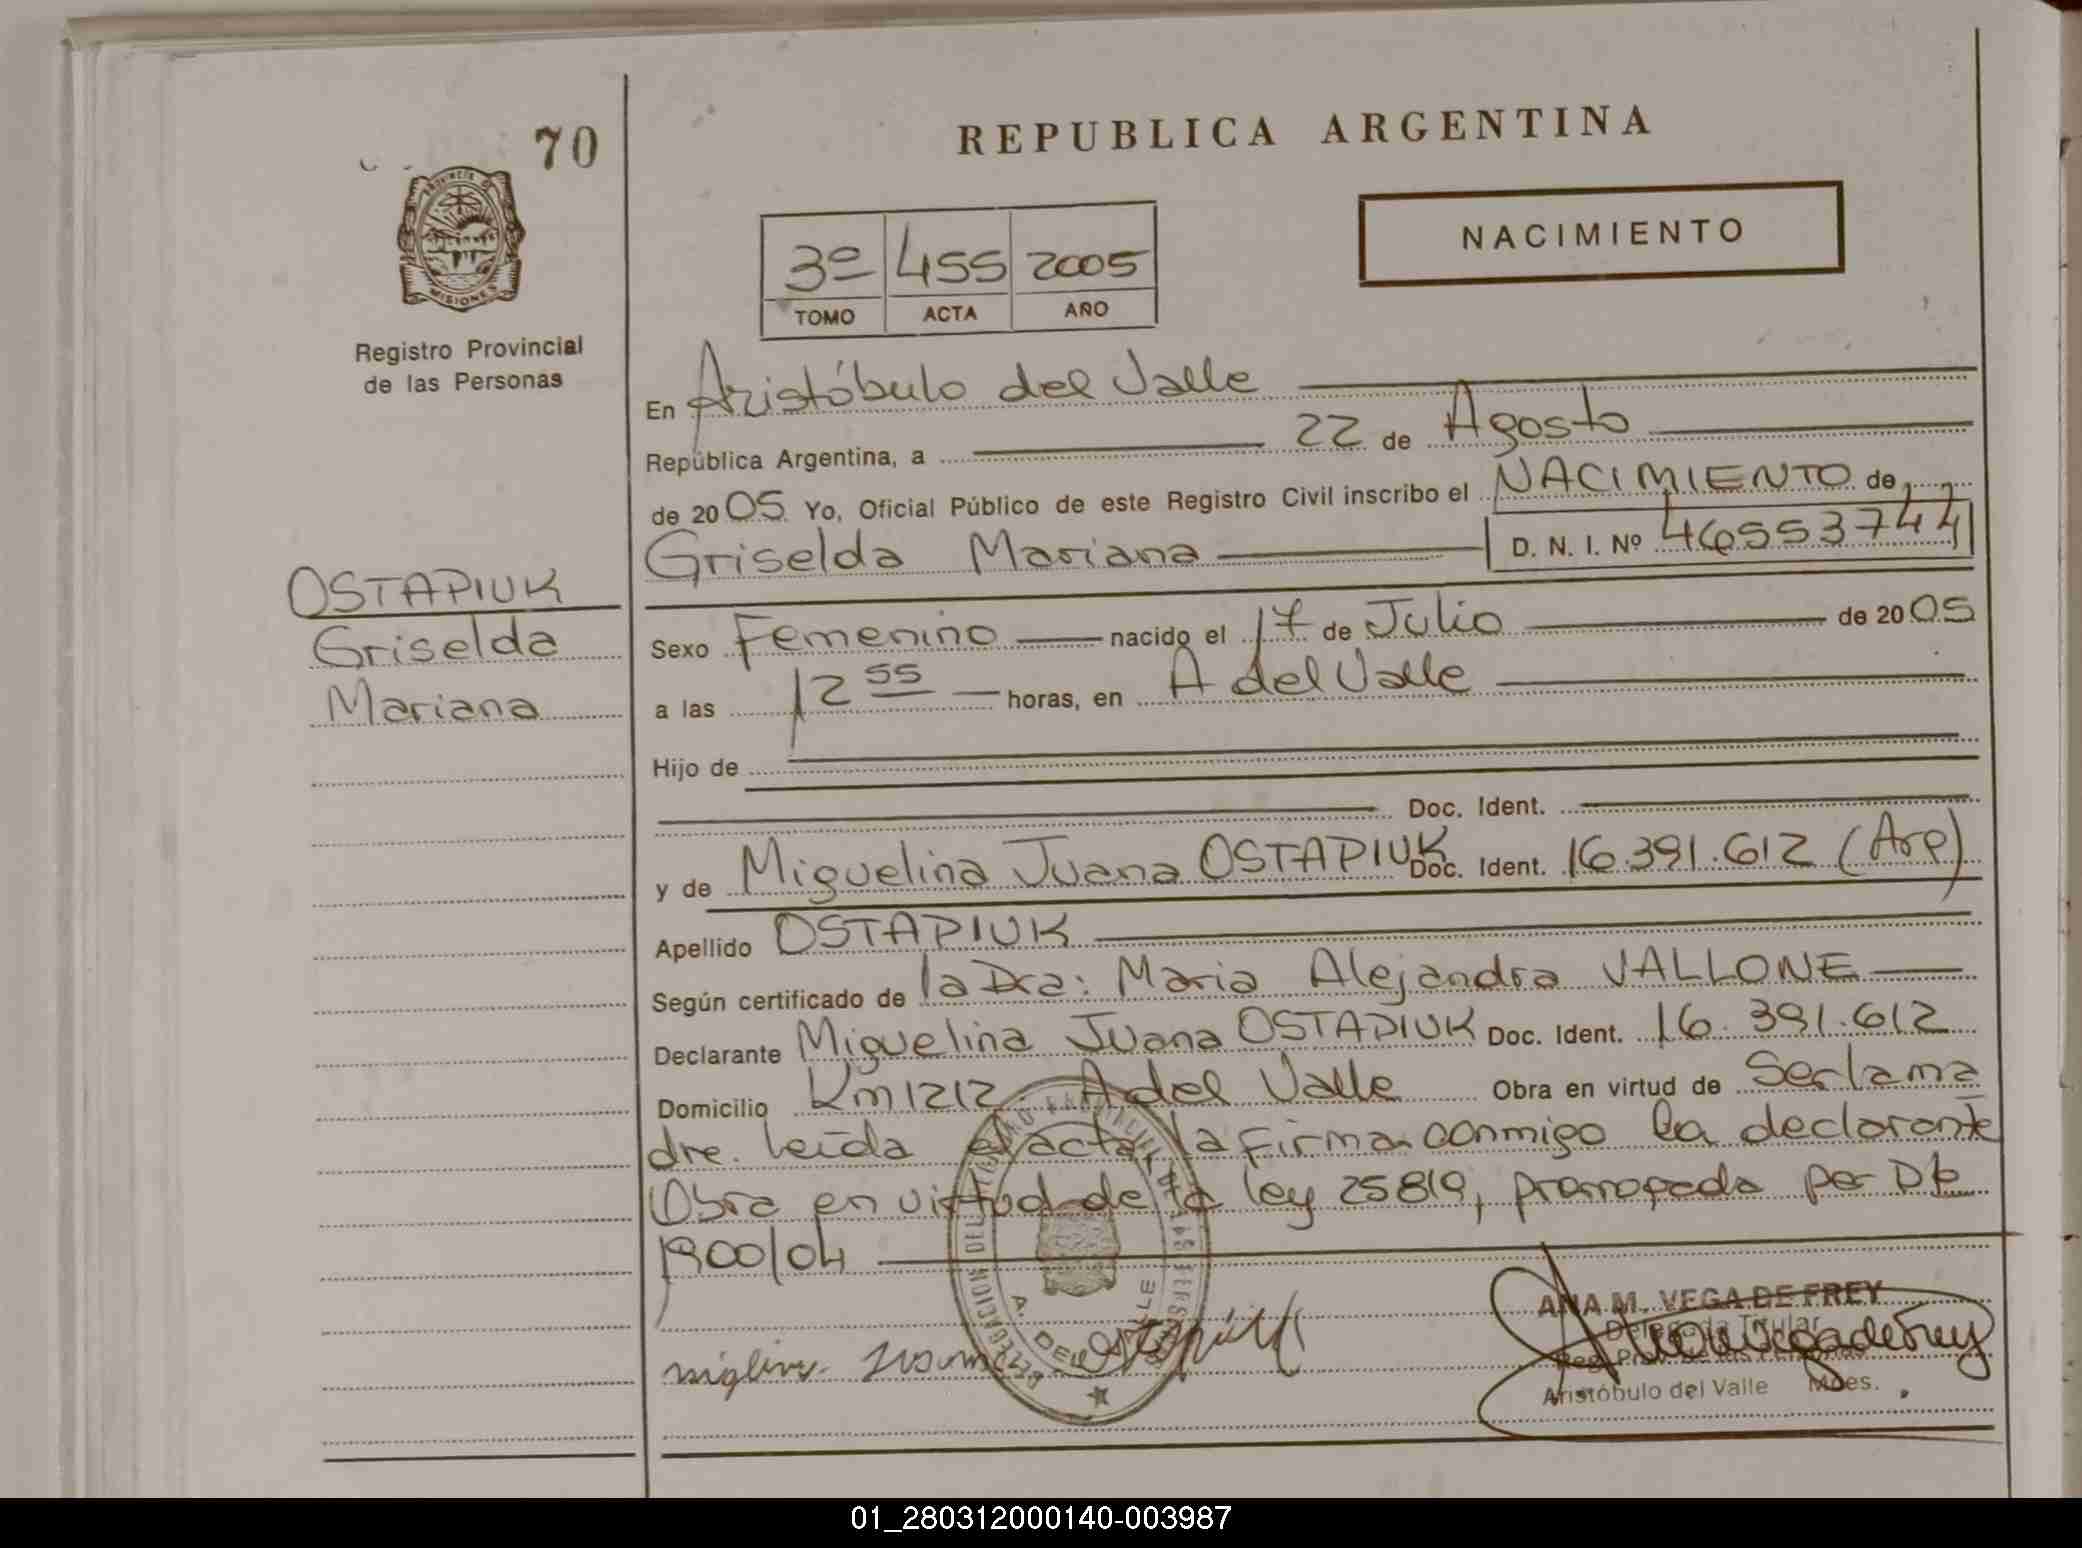 70
REPUBLICA ARGENTINA
PROVINCIA DE
MISIONES
Registro Provincial
de las Personas
NACIMIENTO
3º 455 2005
TOMO ACTA AÑO
En Aristóbulo del Valle
República Argentina, a 22 de Agosto
de 2005 Yo, Oficial Público de este Registro Civil inscribo el NACIMIENTO de
Griselda Mariana D. N. I. Nº 46553744
OSTAPIUK
Griselda
Mariana
Sexo Femenino nacido el 17 de Julio de 2005
a las 12 55 horas, en A del Valle
Hijo de
Doc. Ident.
y de Miguelina Juana OSTAPIUK Doc. Ident. 16.391.612 (Arg)
Apellido OSTAPIUK
Según certificado de la Dra: Maria Alejandra VALLONE
Declarante Miguelina Juana OSTAPIUK Doc. Ident. 16.391.612
Domicilio Km 1212 A del Valle Obra en virtud de Ser la ma
dre. leída el acta, la firma conmigo la declarante
Obra en virtud de la ley 25819, prorrogada por Dto
1900/04
ANA M. VEGA DE FREY
Delegada Titular
Reg. Prov. de las Personas
Aristóbulo del Valle Mnes.
A. DEL VALLE
01_280312000140-003987